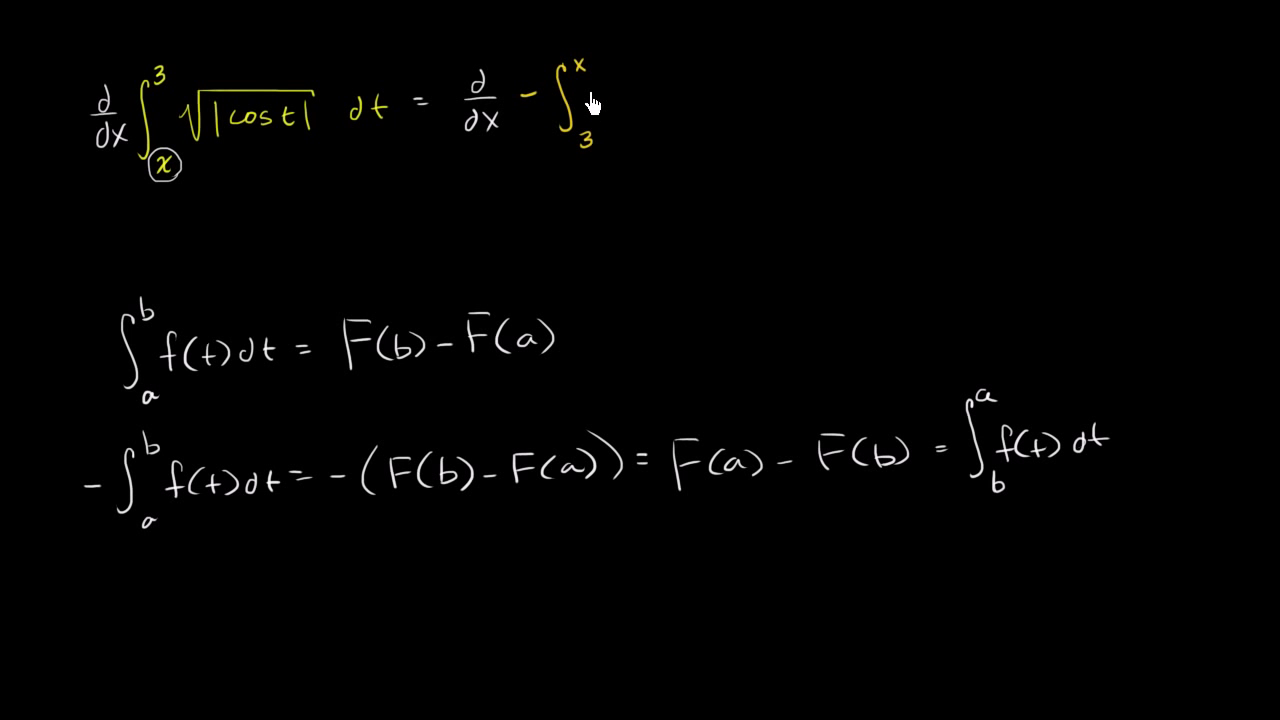 d/dx ∫_x^3 √|cos t| dt = d/dx - ∫_3^x
∫_a^b f(t)dt = F(b) - F(a)
- ∫_a^b f(t)dt = - (F(b) - F(a)) = F(a) - F(b) = ∫_b^a f(t) dt